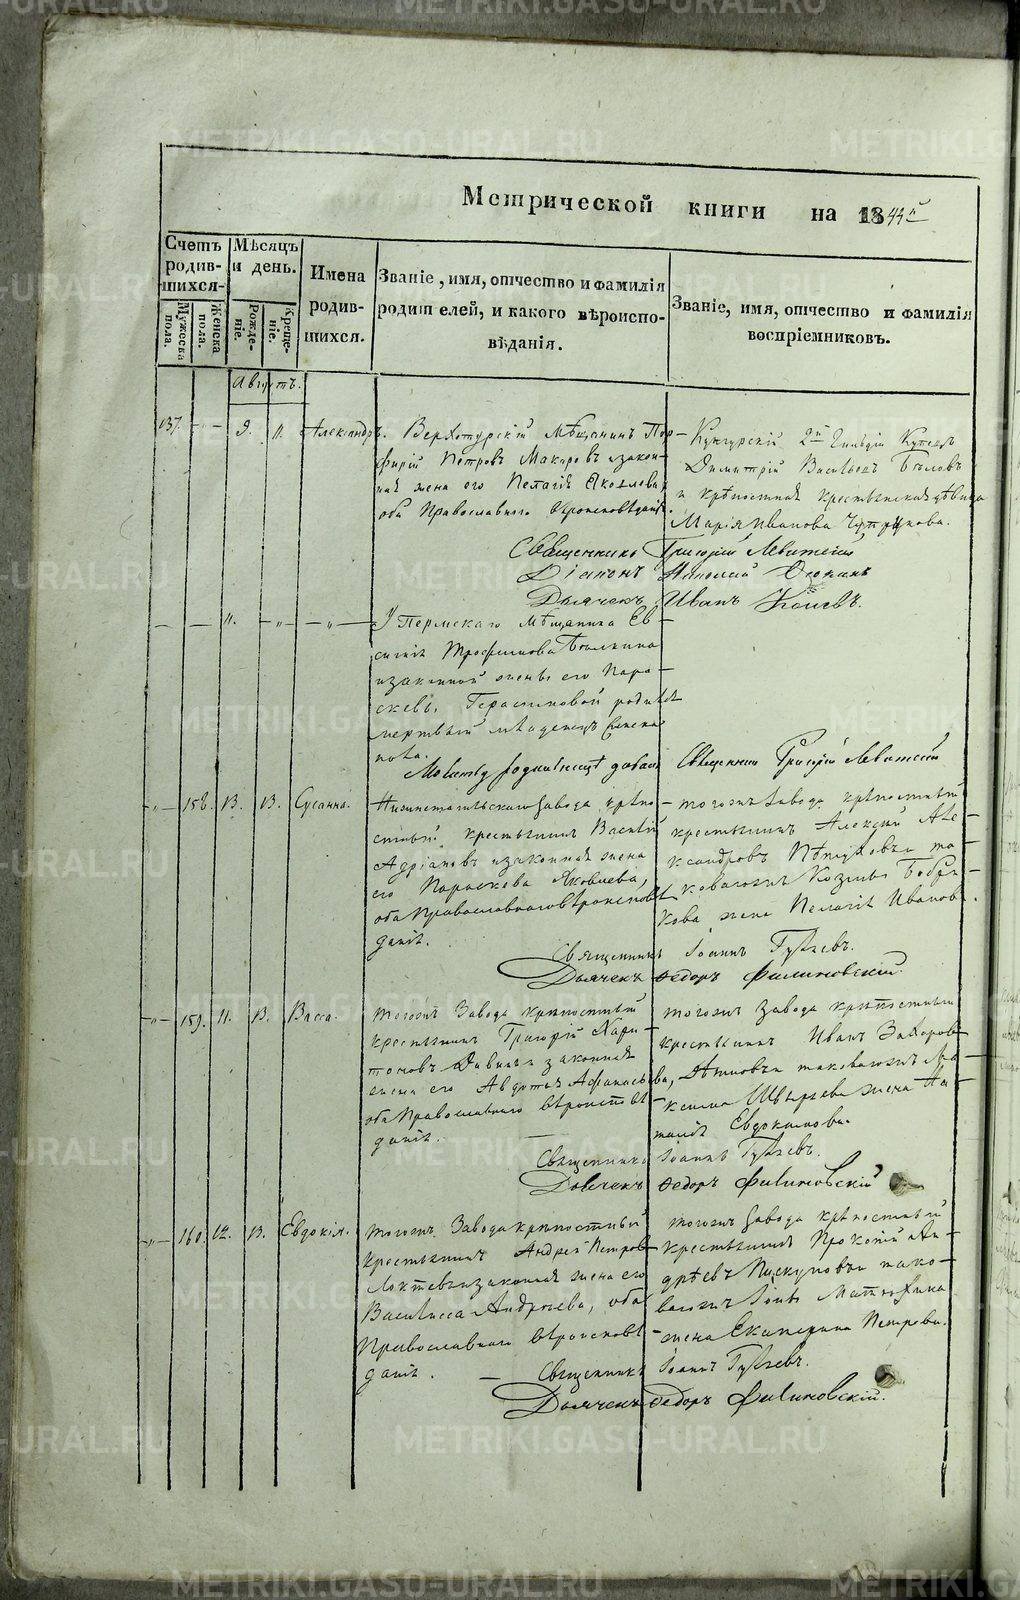 METRIKI.GASO-URAL.RU
Метрической книги на 1844й
Счетъ родив-шихся.
Мужеска пола.
Женска пола.
Мѣсяцъ и день.
Рожде-ніе.
Креще-ніе.
Имена родив-шихся.
Званіе, имя, отчество и фамилія
родителей, и какого вѣроиспо-
вѣданія.
Званіе, имя, отчество и фамилія
воспріемниковъ.
Августъ.
137. 9. 11. Александръ.
Верхотурскій Мѣщанинъ Пор-
фирій Петровъ Макаровъ и закон-
ная жена его Пелагія Яковлева,
оба Православнаго вѣроисповѣданія.
Кунгурскій 2й Гильдіи Купецъ
Димитрій Васильевъ Бѣловъ
и крѣпостная крестьянская дѣвица
Марія Иванова
Священникъ Григорій Левитскій
Діаконъ Николай
Дьячекъ Иванъ
11.
У Пермскаго Мѣщанина Ев-
Трофимова
и законной жены его Пара-
скевы Герасимовой родился
мертвый младенецъ женска
пола.
Молитву родильницѣ давалъ Священникъ Григорій Левитскій
158. 13. 13. Сусанна.
Нижнетагильскаго Завода крѣпо-
стный крестьянинъ Василій
Адріановъ и законная жена
его Параскова Яковлева,
оба Православнаго вѣроисповѣ
данія.
тогожъ Завода крѣпостный
крестьянинъ Алексѣй Але-
ксандровъ и та-
коваго-жъ Козмы Бобри-
кова жена Пелагія Иванова.
Священникъ Іоаннъ
Дьячекъ Ѳедоръ Филиновскій.
159. 11. 13. Васса.
тогожъ Завода крѣпостный
крестьянинъ Григорій Хари-
тоновъ и законная
жена его Авдотья Афанасьева,
оба Православнаго вѣроисповѣ
данія.
тогожъ Завода крѣпостный
крестьянинъ Иванъ Захаровъ
и таковаго-жъ Ма-
ксима жена На-
талія Евдокимова.
Священникъ Іоаннъ
Дьячекъ Ѳедоръ Филиновскій
160. 12. 13. Евдокія.
тогожъ Завода крѣпостный
крестьянинъ Андрей Петровъ
и законная жена его
Василисса Андреева, оба
Православнаго вѣроисповѣ
данія.
тогожъ Завода крѣпостный
крестьянинъ Прокопій Ан-
дрѣевъ Пискуновъ и тако-
ваго-жъ
жена Екатерина Петрова.
Священникъ Іоаннъ
Дьячекъ Ѳедоръ Филиновскій.